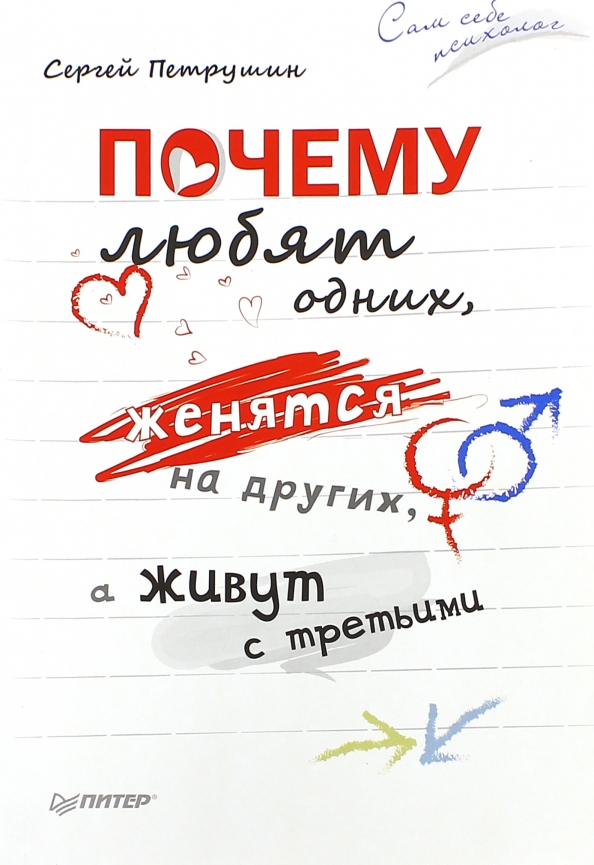 Сам себе
психолог
Сергей Петрушин
ПОЧЕМУ
любят
одних,
женятся
на других,
а живут
с третьими
ПИТЕР®